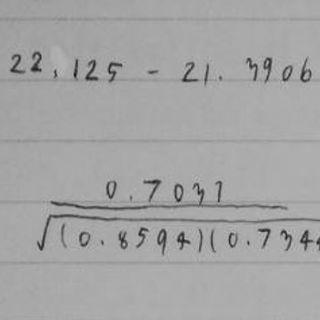 22.125 - 21.3906
0.7031
√(0.8594)(0.7344